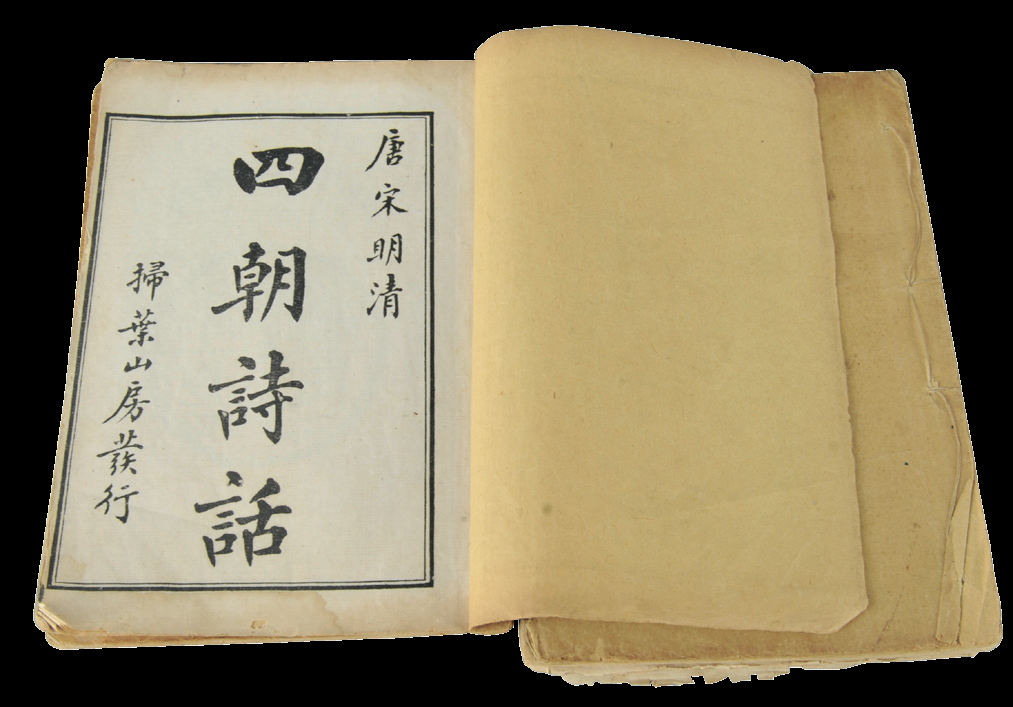 唐宋明清
四朝詩話
掃葉山房發行